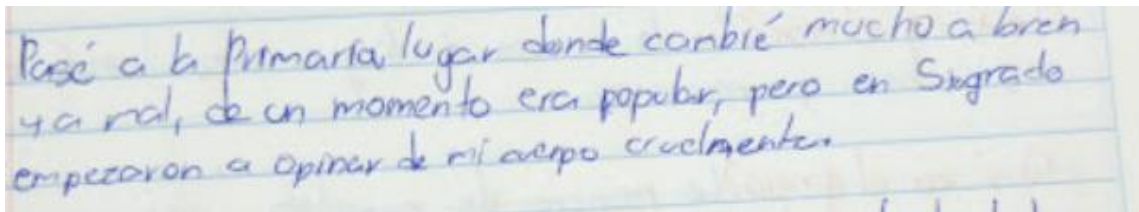 Pasé a la Primaria lugar donde cambié mucho a bien
y a mal, de un momento era popular, pero en 5to grado
empezaron a opinar de mi cuerpo cruelmente.